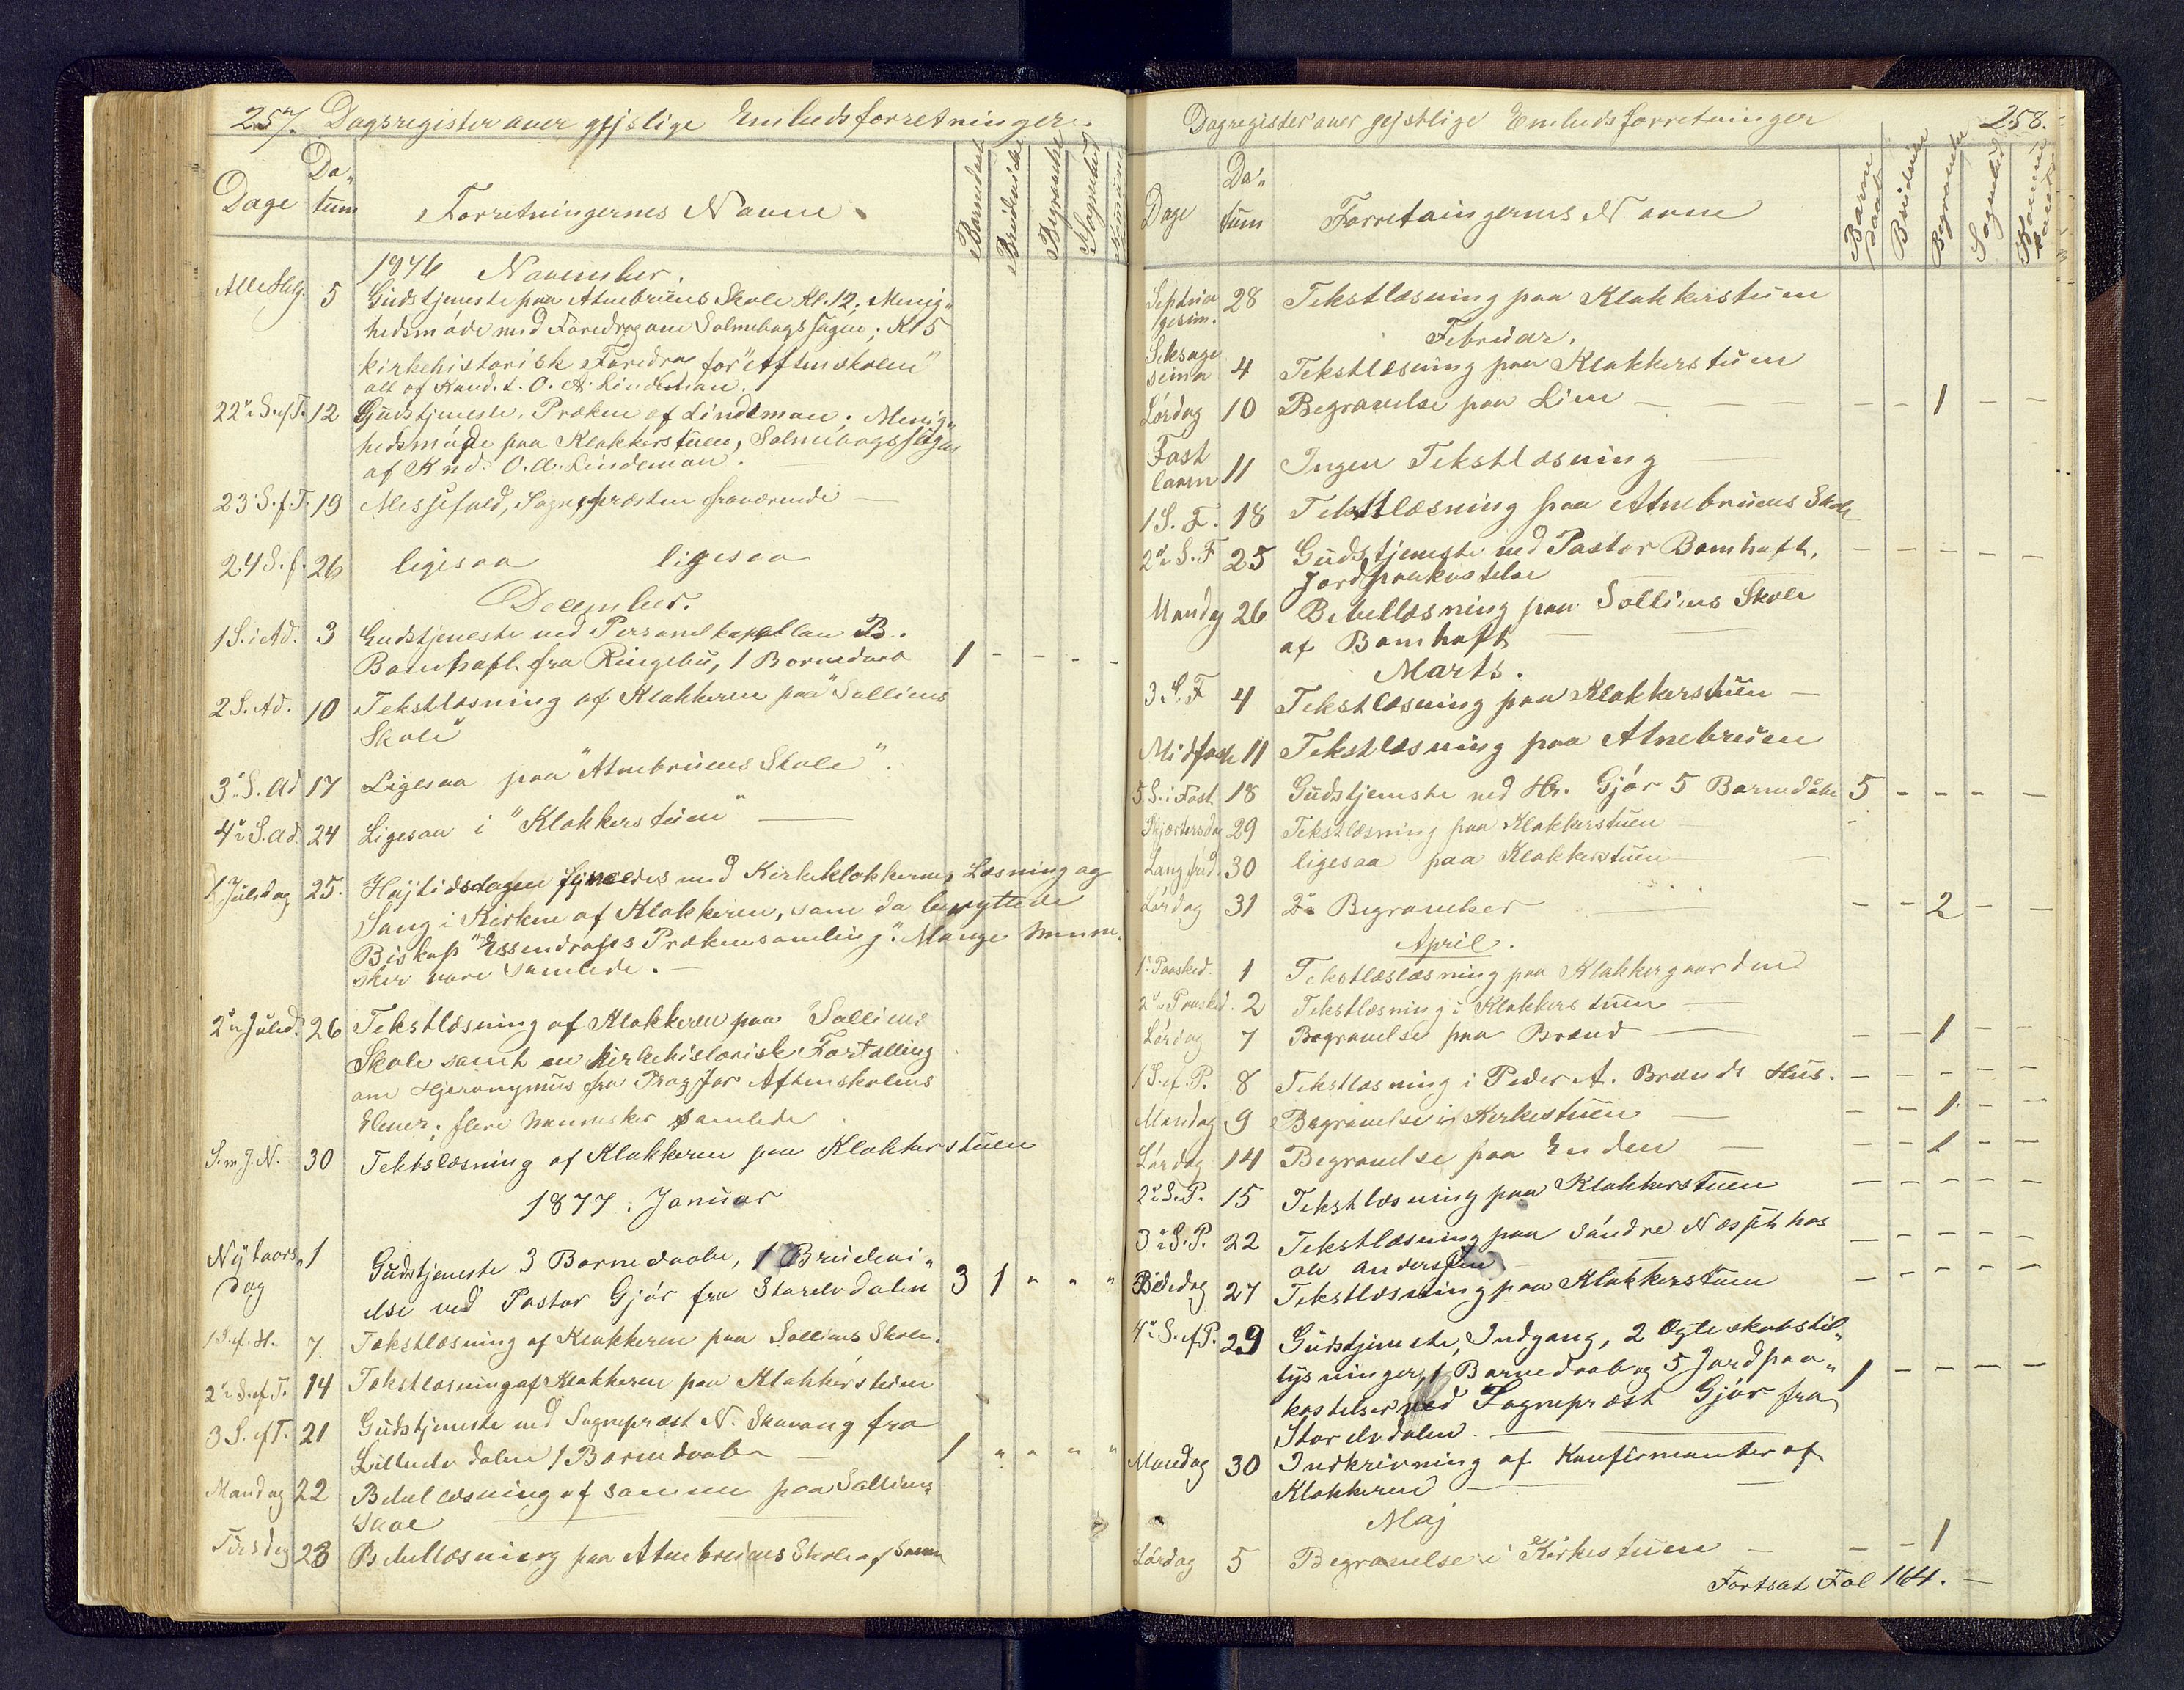 257. Dagsregister over gejslige Embedsforretninger.
Dage
Da„
tum
Forretningernes Navne.
Barnedaab
Brudevielse
Begravelse
Sognebud
1876 November.
AlleHelg. 5 Gudstjeneste paa Atnebruens Skole Kl. 12; Menig„
hedsmøde med Foredrag om Salmebogssagen; Kl 5
kirkehistorisk Foredra for "Aftenskolen"
alt af Kand. t. O. A. Lindeman.
22n S.ef.T. 12 Gudstjeneste. Præken af Lindeman; Menig„
hedsmøde paa Klokkerstuen, Salmebogssagen
af Knd. O. A. Lindeman.
23 S.f.T. 19 Messefald, Sognepræsten fraværende —
24 S.f. 26 ligesaa ligesaa
December.
1 S.i Ad. 3 Gudstjeneste ved Personelkapellan B.
Bomhoft fra Ringebu, 1 Barnedaab 1 - - - -
2 S. Ad. 10 Tekstlæsning af Klokkeren paa "Solliens
Skole"
3n S. Ad 17 Ligesaa paa "Atnebruens Skole".
4n S. Ad. 24 Ligesaa i "Klokkerstuen" —
1 Juledag 25. Højtidsdagen med Kirkeklokkernes Læsning og
Sang i Kirken af Klokkeren, som da benyttede
Biskop "Essendrops Prækensamling". Mange Menne„
sker vare samlede. —
2n Juled. 26 Tekstlæsning af Klokkeren paa "Solliens
Skole samt en kirkehistorisk Fortælling
om Hjeronymus fra Prag for Aftenskolens
Elever; flere Mennesker samlede.
S. m J. N. 30 Tektslæsning af Klokkeren paa Klokkerstuen
1877. Januar
Nytaars„ 1 Gudstjeneste 3 Barnedaabe, 1 Brudevi„
dag
else ved Pastor Gjør fra Storelvdalen 3 1 " " "
1 S.f.H. 7. Tekstlæsning af Klokkeren paa Solliens Skole.
2n S.ef.T. 14 Tekstlæsning af Klokkeren paa Klokkerstuen
3 S. efT. 21 Gudstjeneste ved Sognepræst N. Skavang fra
Lilleelvdalen 1 Barnedaab — 1 " " " "
Mandag 22 Bibellæsning af samme paa Solliens
Skole
Tirsdag 23 Bibellæsning paa Atnebruens Skole af samme
Dagregister over gejstlige Embedsforretninger 258.
Dage
Da„
tum
Forretningernes Navne
Barne
daab
Brudevielse
Begravelse
Sognebud
Septua
gesim. 28 Tekstlæsning paa Klokkerstuen
Februar.
Seksage
sima 4 Tekstlæsning paa Klokkerstuen
Lørdag 10 Begravelse paa Lien — — - - 1 - -
Fast
lavn 11 Ingen Tekstlæsning —
1 S. F. 18 Tekstlæsning paa Atnebruens Skole
2n S. F 25 Gudstjeneste ved Pastor Bomhoft, - - - - -
Jordpaakastelse
Mandag 26 Bibellæsning paa Solliens Skole
af Bomhoft — —
Marts.
3 S. F 4 Tekstlæsning paa Klokkerstuen —
Midfaste 11 Tekstlæsning paa Atnebruen
5 S. i Fast. 18 Gudstjeneste ved Hr. Gjør 5 Barnedåbe 5 - - - -
Skjærtorsdag 29 Tekstlæsning paa Klokkerstuen
Langfred. 30 ligesaa paa Klokkerstuen —
Lørdag 31 2n Begravelser - - 2 - -
April.
1n Paasked. 1 Tekstlæslæsning paa Klokkergaarden
2n Paasked. 2 Tekstlæsning i Klokkerstuen —
Lørdag 7 Begravelse paa Brænd — - - 1 - -
1 S. ef. P. 8 Tekstlæsning i Peder A. Brænds Hus. - - - - -
Mandag 9 Begravelse i Kirkestuen — - - 1 - -
Lørdag 14 Begravelse paa Enden — - - 1 - -
2n S. P. 15 Tekstlæsning paa Klokkerstuen - - - - -
3n S. P. 22 Tekstlæsning paa søndre Næsset hos - - - - -
Ole Andersen
Bededag 27 Tekstlæsning paa Klokkerstuen - - - - -
4n S. ef P. 29 Gudstjeneste, Indgang, 2 Ægteskabstil„
lysninger, 1 Barnedaab og 5 Jordpaa„ 1 - - - -
kastelser ved Sognepræst Gjør fra
Storelvdalen. — —
Mandag 30 Indkrivning af Konfirmanter af
Klokkeren — —
Maj
Lørdag 5 Begravelse i Kirkestuen — - - 1
Fortsat Fol 164. —